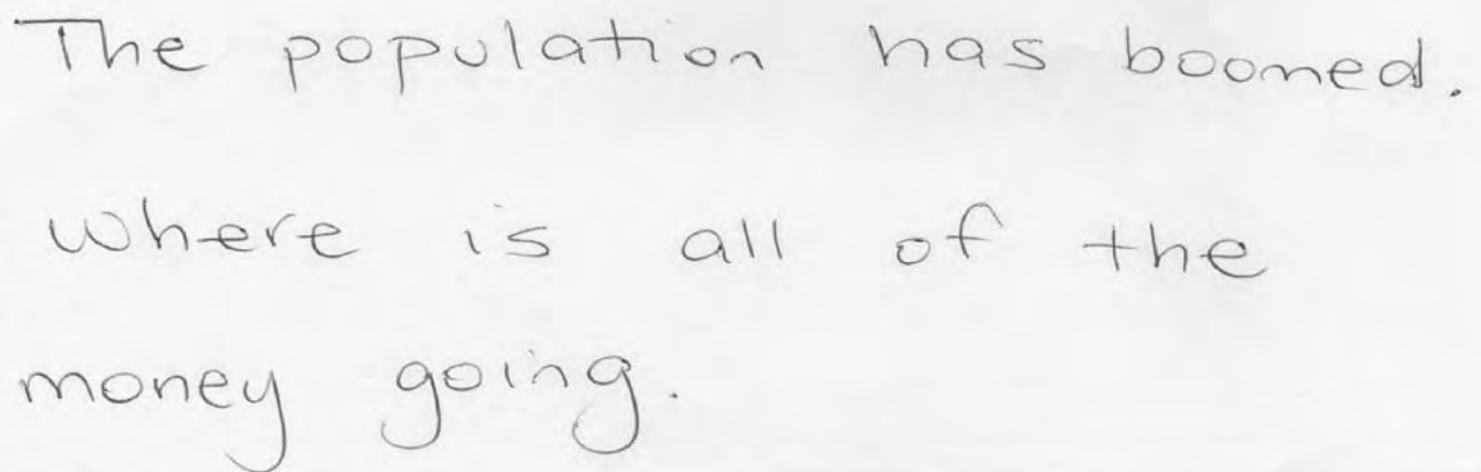 The population has boomed.
where is all of the
money going.